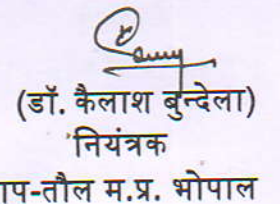 (डॉ. कैलाश बुन्देला)
नियंत्रक
ाप-तौल म.प्र. भोपाल